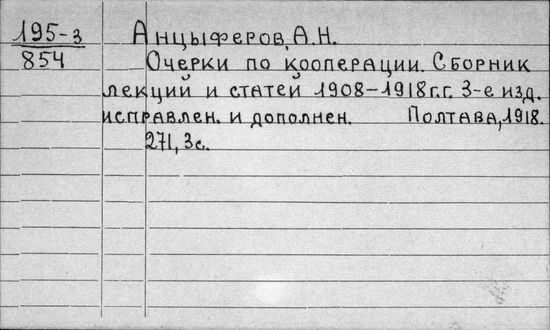 195-3 Анцыферов, А.Н.
854 Очерки по кооперации. Сборник
лекций и статей 1908-1918 г.г. 3-е изд.
исправлен. и дополнен. Полтава, 1918.
271, 3 с.